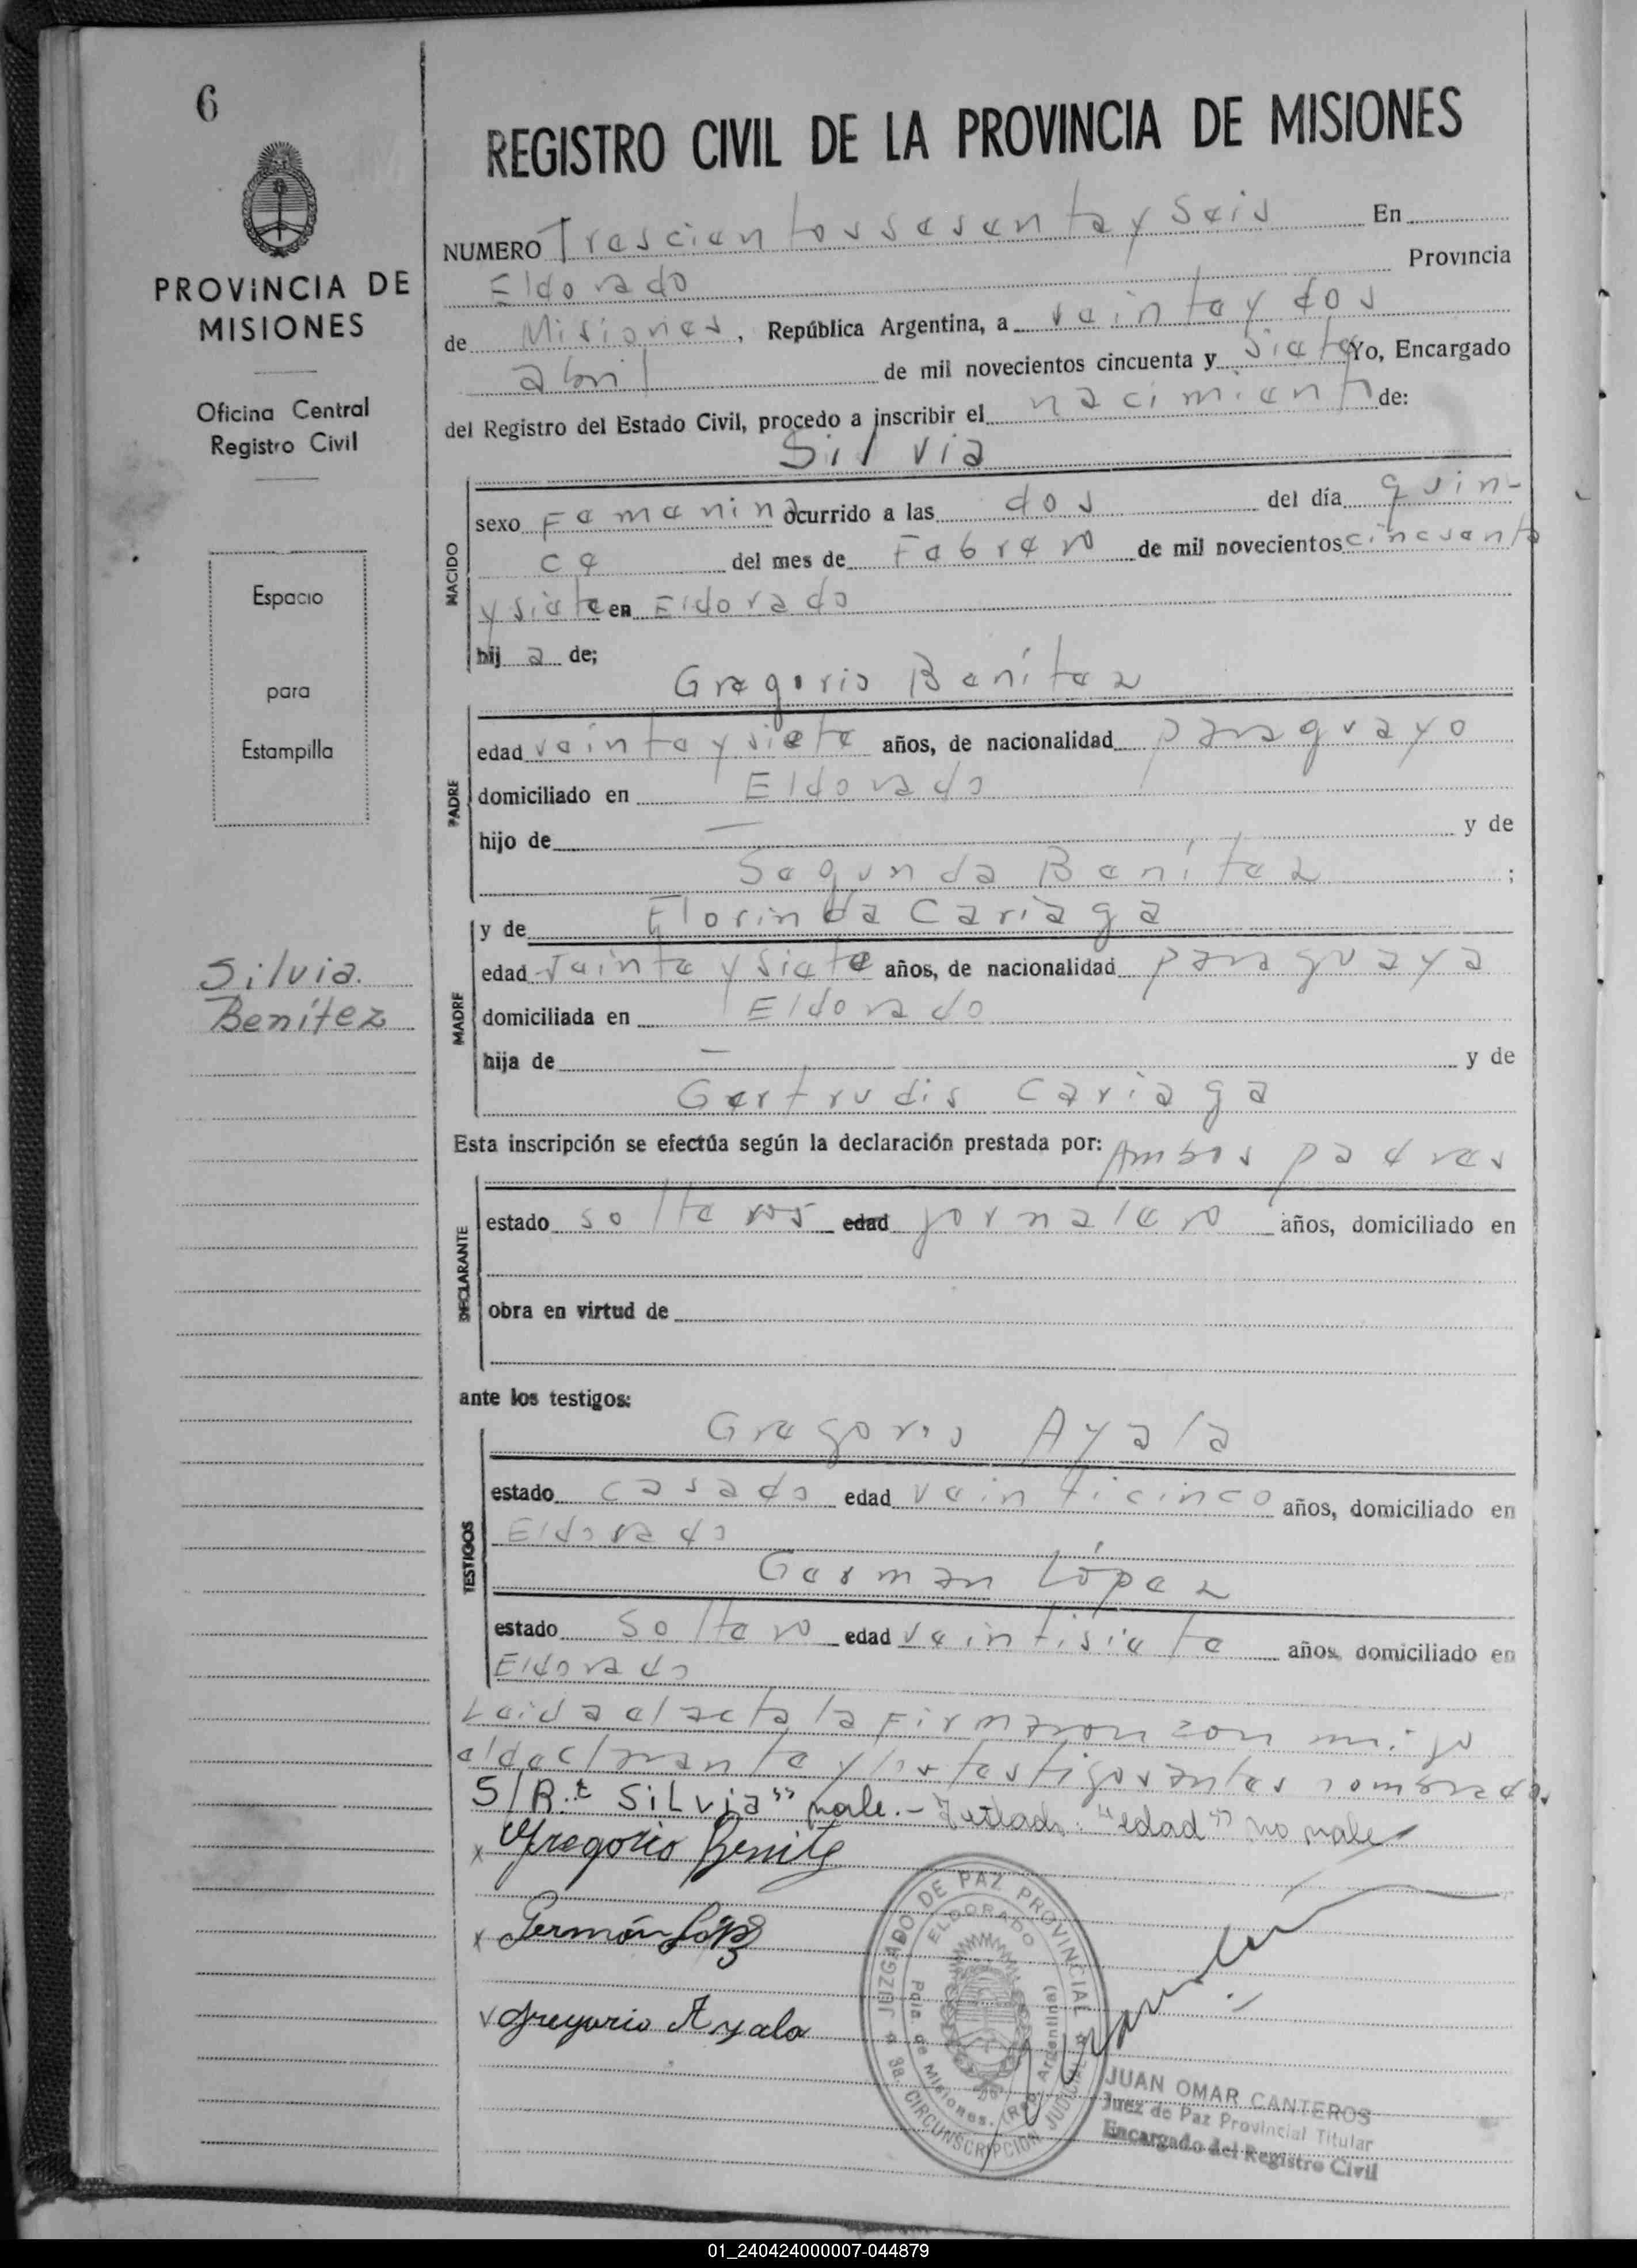 6
PROVINCIA DE
MISIONES
Oficina Central
Registro Civil
Espacio
para
Estampilla
Silvia.
Benítez
REGISTRO CIVIL DE LA PROVINCIA DE MISIONES
NUMERO Trescientos sesenta y seis En
Eldorado Provincia
de Misiones, República Argentina, a veinte y dos
abril de mil novecientos cincuenta y siete Yo, Encargado
del Registro del Estado Civil, procedo a inscribir el nacimiento de:
Silvia
NACIDO
sexo Femenino ocurrido a las dos del día quin-
ce del mes de Febrero de mil novecientos cincuenta
y siete en Eldorado
hij a de;
Gregorio Benítez
PADRE
edad veinte y siete años, de nacionalidad paraguayo
domiciliado en Eldorado
hijo de — y de
Segunda Benítez ;
y de Florinda Cariaga
MADRE
edad veinte y siete años, de nacionalidad paraguaya
domiciliada en Eldorado
hija de — y de
Gertrudis Cariaga
Esta inscripción se efectúa según la declaración prestada por: Ambos padres
DECLARANTE
estado solteros edad jornalero años, domiciliado en
obra en virtud de
ante los testigos:
Gregorio Ayala
TESTIGOS
estado casado edad veinticinco años, domiciliado en
Eldorado
German López
estado soltero edad veintisiete años, domiciliado en
Eldorado
Leida el acta la Firmaron con migo
el declarante y los testigos antes nombrados.
S/R: "Silvia" vale.- Testado: "edad" no vale
x Gregorio Benitez
x Germán López
v Gregorio Ayala
JUZGADO DE PAZ PROVINCIAL
ELDORADO
Pcia. de Misiones. (Rep. Argentina)
3a. CIRCUNSCRIPCION JUDICIAL
JUAN OMAR CANTEROS
Juez de Paz Provincial Titular
Encargado del Registro Civil
01_240424000007-044879